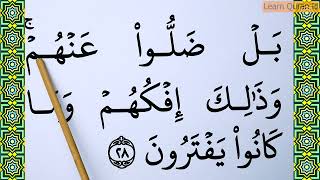 Learn Quran id
بَلۡ ضَلُّواْ عَنۡهُمۡۚ
وَذَٰلِكَ إِفۡكُهُمۡ وَمَا
كَانُواْ يَفۡتَرُونَ ٢٨